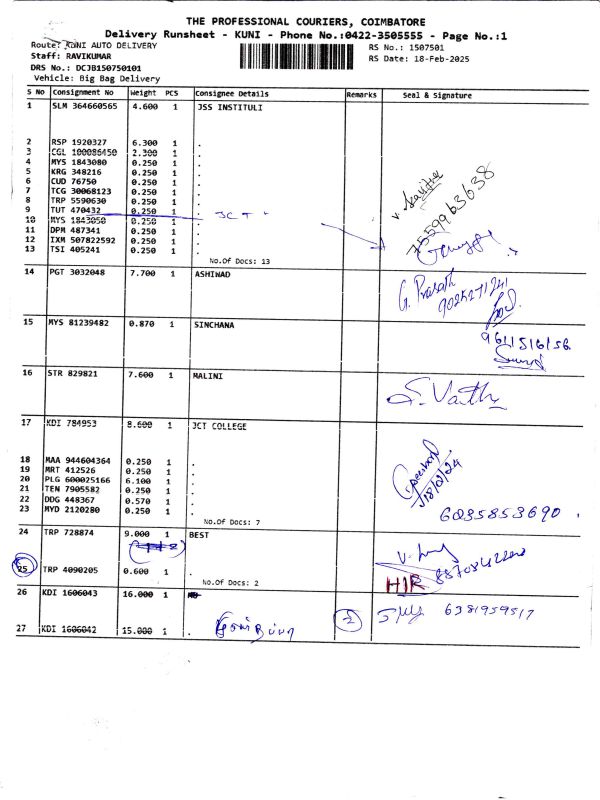 THE PROFESSIONAL COURIERS, COIMBATORE
Delivery Runsheet - KUNI - Phone No.:0422-3505555 - Page No.:1
Route: KUNI AUTO DELIVERY
RS No.: 1507501
Staff: RAVIKUMAR
RS Date: 18-Feb-2025
DRS No.: DCJB150750101
Vehicle: Big Bag Delivery
S No Consignment No Weight PCS Consignee Details Remarks Seal & Signature
1 SLM 364660565 4.600 1 JSS INSTITULI
2 RSP 1920327 6.300 1 .
3 CGL 100086450 2.300 1 .
4 MYS 1843080 0.250 1 .
5 KRG 348216 0.250 1 .
6 CUD 76750 0.250 1 .
7 TCG 30068123 0.250 1 .
8 TRP 5590630 0.250 1 .
9 TUT 470432 0.250 1 . JCT
10 MYS 1843050 0.250 1 .
11 DPM 487341 0.250 1 .
12 IXM 507822592 0.250 1 .
13 TSI 405241 0.250 1 .
7559963638
No.Of Docs: 13
14 PGT 3032048 7.700 1 ASHIWAD
G. Prasath
9025271241
15 MYS 81239482 0.870 1 SINCHANA
16 STR 829821 7.600 1 MALINI
17 KDI 784953 8.600 1 JCT COLLEGE
18 MAA 944604364 0.250 1 .
19 MRT 412526 0.250 1 .
20 PLG 600025166 6.100 1 .
21 TEN 7905582 0.250 1 .
22 DDG 448367 0.570 1 .
23 MYD 2120280 0.250 1 .
6035853690
No.Of Docs: 7
24 TRP 728874 9.000 1 BEST
25 TRP 4090205 0.600 1 .
HJR
No.Of Docs: 2
26 KDI 1606043 16.000 1
6381959517
2
27 KDI 1606042 15.000 1 .